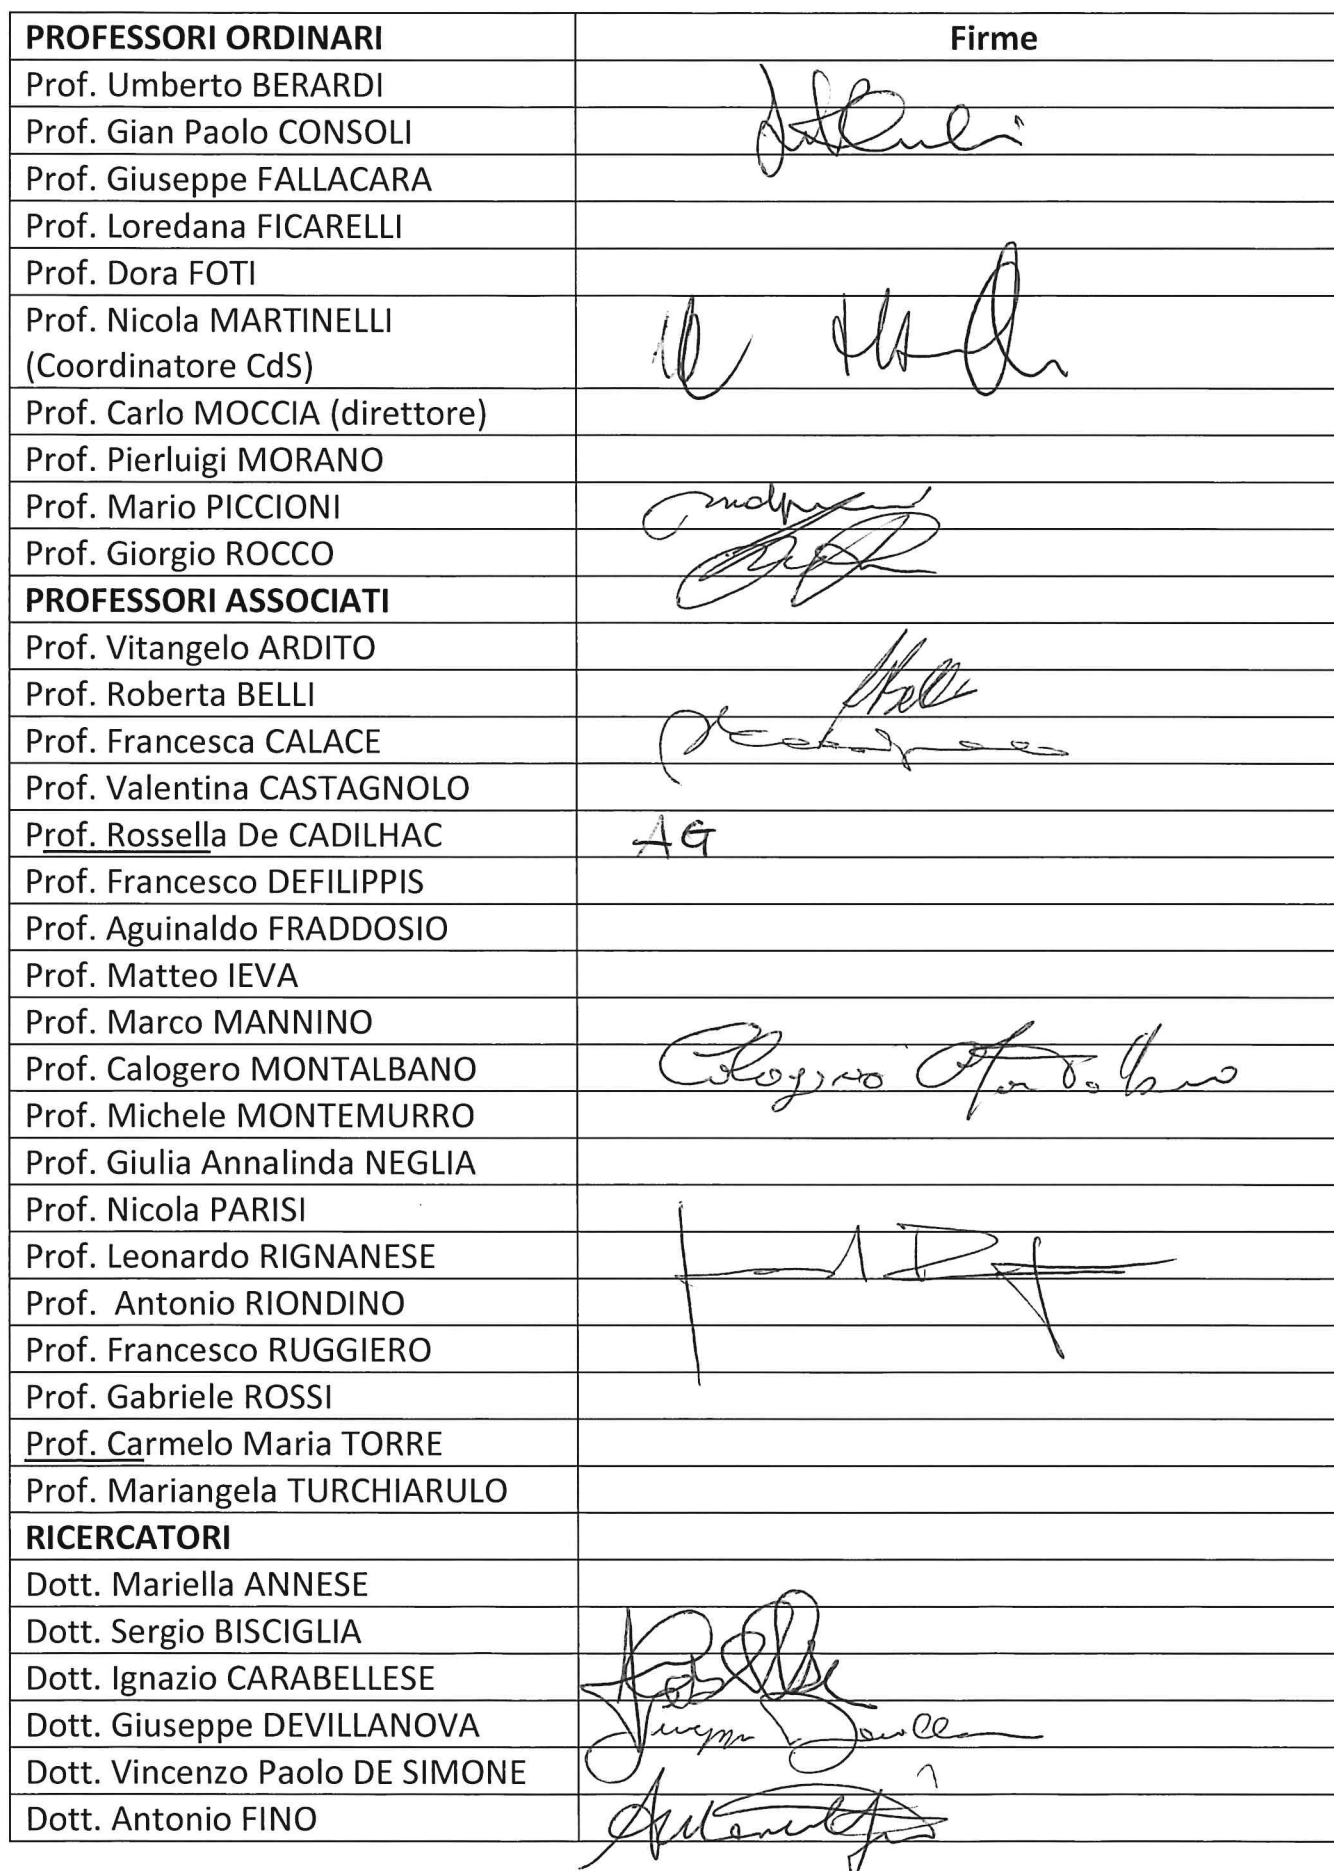 PROFESSORI ORDINARI Firme
Prof. Umberto BERARDI
Prof. Gian Paolo CONSOLI
Prof. Giuseppe FALLACARA
Prof. Loredana FICARELLI
Prof. Dora FOTI
Prof. Nicola MARTINELLI
(Coordinatore CdS)
Prof. Carlo MOCCIA (direttore)
Prof. Pierluigi MORANO
Prof. Mario PICCIONI
Prof. Giorgio ROCCO
PROFESSORI ASSOCIATI
Prof. Vitangelo ARDITO
Prof. Roberta BELLI
Prof. Francesca CALACE
Prof. Valentina CASTAGNOLO
Prof. Rossella De CADILHAC AG
Prof. Francesco DEFILIPPIS
Prof. Aguinaldo FRADDOSIO
Prof. Matteo IEVA
Prof. Marco MANNINO
Prof. Calogero MONTALBANO Calogero Montalbano
Prof. Michele MONTEMURRO
Prof. Giulia Annalinda NEGLIA
Prof. Nicola PARISI
Prof. Leonardo RIGNANESE
Prof. Antonio RIONDINO
Prof. Francesco RUGGIERO
Prof. Gabriele ROSSI
Prof. Carmelo Maria TORRE
Prof. Mariangela TURCHIARULO
RICERCATORI
Dott. Mariella ANNESE
Dott. Sergio BISCIGLIA
Dott. Ignazio CARABELLESE
Dott. Giuseppe DEVILLANOVA
Dott. Vincenzo Paolo DE SIMONE
Dott. Antonio FINO